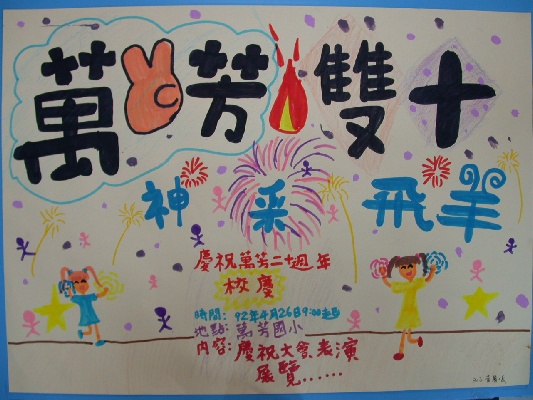 萬芳雙十
神采飛羊
慶祝萬芳二十週年
校慶
時間: 92年4月26日9:00起
地點: 萬芳國小
內容: 慶祝大會、表演
展覽......